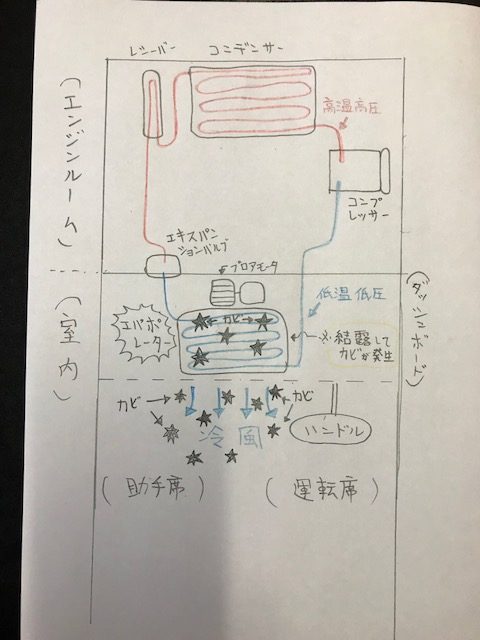 レシーバー
コンデンサー
（エンジンルーム）
高温高圧
コンプ
レッサー
エキスパン
ションバルブ
ブロアモータ
（ダッシュボード）
（室内）
低温低圧
エバポ
レーター
カビ
※結露して
カビが発生
カビ
カビ
冷風
ハンドル
（助手席）
（運転席）